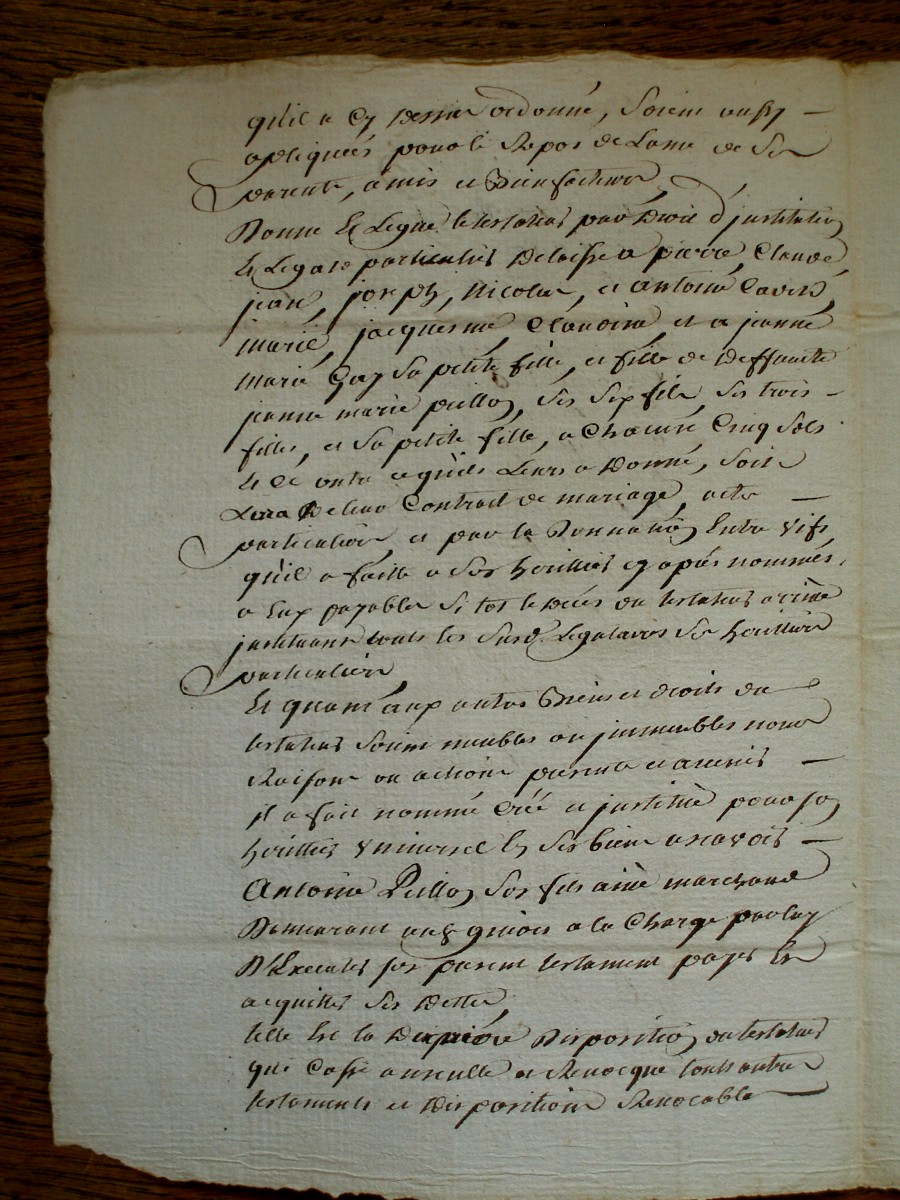 qu'il a Cy dessus ordonné, Soient aussy
apliqueés pour le Repos de Lame de Ses
parents, amis et Bienfacteurs
Donne Et Legue le testateur par Droit d'justitution
Et Legats particuliers Delaisse a pierre, Claude,
jean, joseph, Nicolas, et antoine Cadets,
marie, jacquesme, Claudine, et a jeanne
marie Gay Sa petite fille, et fille de deffuncte
jeanne marie peillon, Ses Six fils, Ses trois
filles, et Sa petite fille, a Chacune Cinq Sols
Et Cé outre ce qu'il Leurs a Donné, Soit
Lors De leur Contract de mariage, actes
particuliers, et par la Donnation Entre Vifs
qu'il a faitte a Ses heritiers cy aprés nommés,
a Eux payables Si tot le Décés du testateur arrivé
justituant touts les Susd. Legataires Ses heritiers
particuliers
Et quant aux autres Biens et droits du
testateur Soient meubles ou jmmeubles noms
Raisons ou actions presents et avenirs
il a fait nommé Créé et justitué pour son
heritier Universel En Ses biens a scavoir
Antoine Peillon Son fils ainé marchand
Demeurant a la Charge par luy
D'Executer son present testament payer Et
acquitter Ses Dettes
telle Est la Derniére Disposition du testateur
qui Casse annulle et Revocque touts autres
testaments et Dispositions Revocables